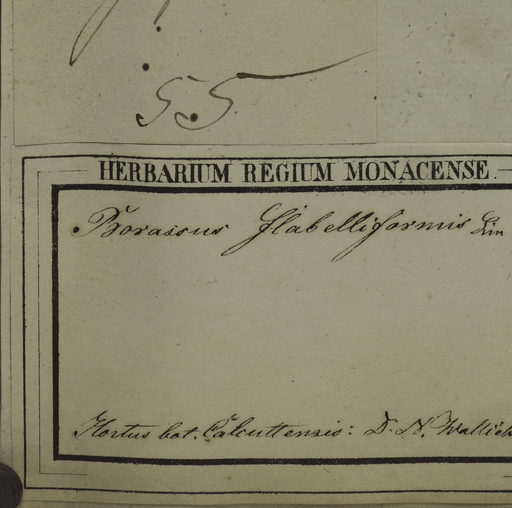 55.
HERBARIUM REGIUM MONACENSE.
Borassus flabelliformis Lin
Hortus bot. Calcuttensis: D. N. Wallich